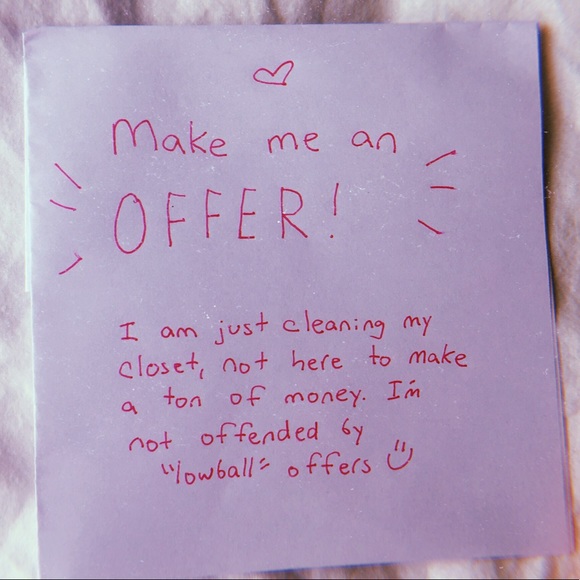 Make me an
OFFER!
I am just cleaning my
closet, not here to make
a ton of money. I'm
not offended by
"lowball" offers